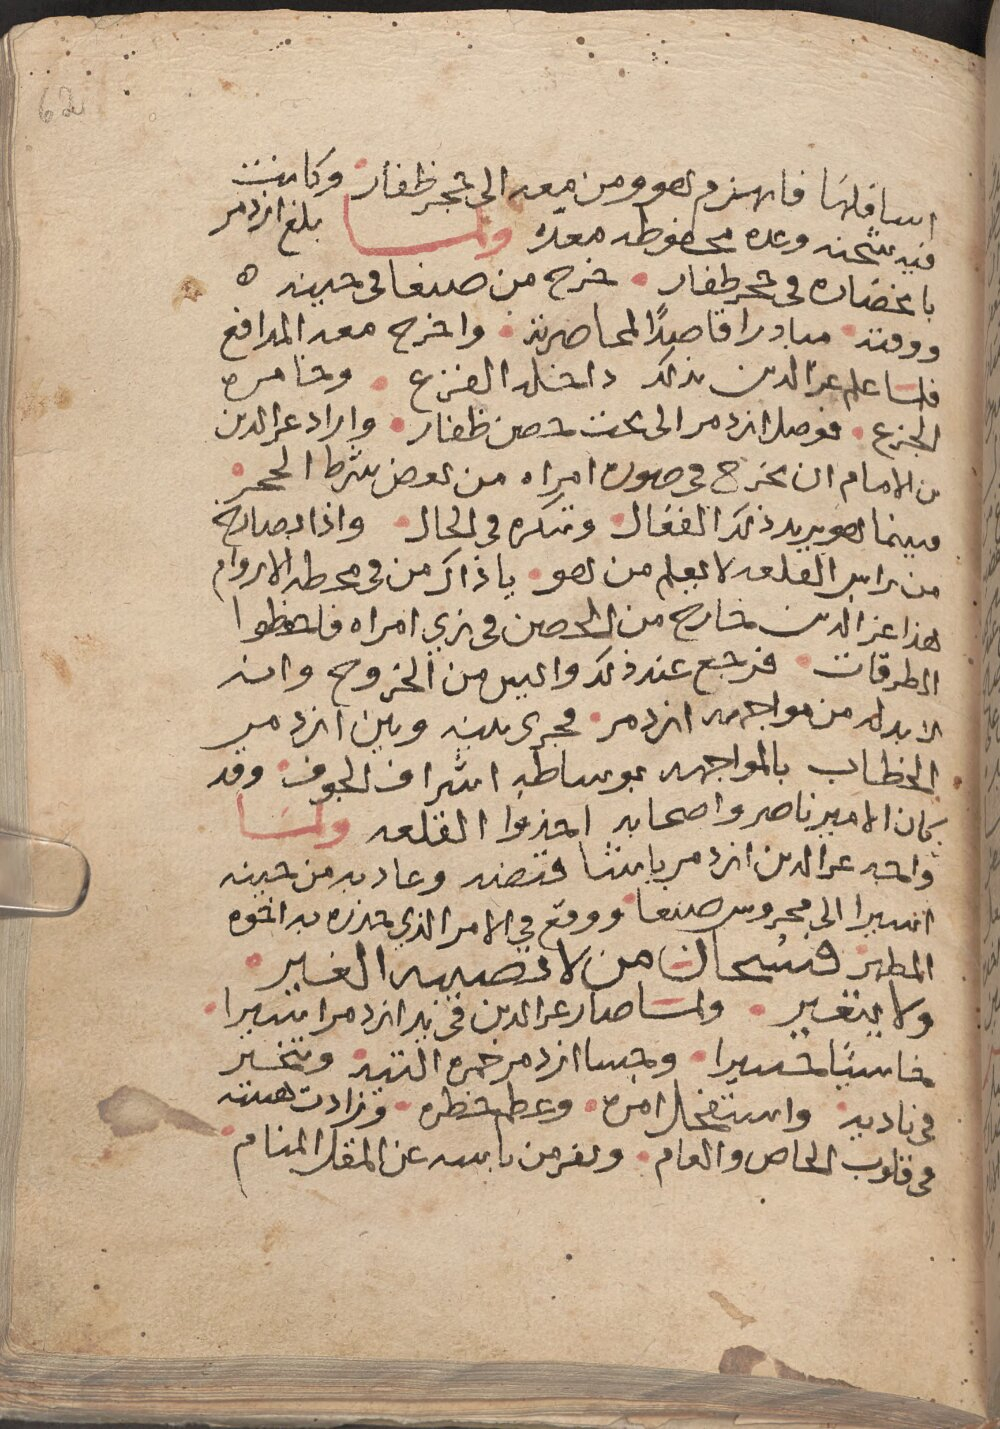 اسافلها فانهزم هو ومن معه الى حجر ظفار وكانت
فيه شحنه وعده محفوظه معده ولما بلغ ازدمر
باعضاده في حجر ظفار خرج من صنعا في حينه ه
ووقته مبادرا قاصدًا لمحاصرته واخرج معه المدافع
فلما علم عز الدين بذلك داخله الفزع وخامره
الجزع فوصل ازدمر الى تحت حصن ظفار واراد عز الدين
بن الامام ان يخرج في صوره امراه من بعض شرط الحجر
فبينما هو يريد ذلك الفعال وتنكره في الحال واذا بصارخ
من راس القلعه لا يعلم من هو يا ذاكر من في محطه الاروام
هذا عز الدين خارج من الحصن في زي امراه فاحفظوا
الطرقات فرجع عند ذلك وايس من الخروج وانه
لا بد له من مواجهه ازدمر فجرى بينه وبين ازدمر
الخطاب بالمواجهه بوساطه اشراف الجوف وقد
كان الامير ناصر واصحابه اخذوا القلعه ولما
واجه عز الدين ازدمر باشا قبضه وعاد به من حينه
اسيرا الى محروس صنعا ووقع في الامر الذي حذره به اخوه
المطهر فسُبحان من لا تصيبه الغير
ولا يتغير ولما صار عز الدين في يد ازدمر اسيرا
خاسئًا حسيرا وحسا ازدمر خمره التيه وتبختر
في ناديه واستفحل امره وعظم خطره وزادت هيبته
في قلوب الخاص والعام ونفر من باسه عن المقل المنام